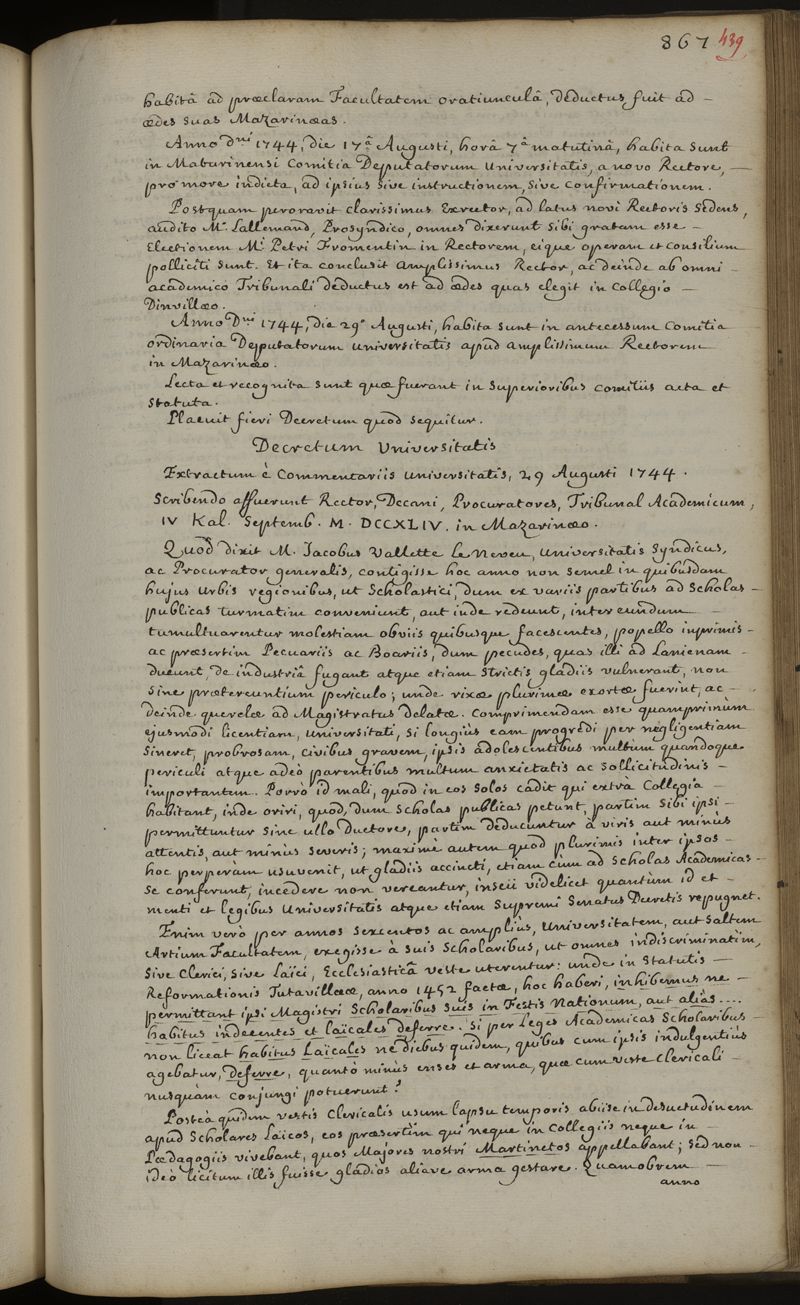 867 439
habitâ ad præclaram Facultatem oratiunculâ, deductus fuit ad –
ædes suas Mazarinæas.
Anno Dni 1744, die 17â Augusti, horâ 7â matutinâ, habita sunt
in Maturinensi Comitia Deputatorum Universitatis, a novo Rectore, —
pro more indicta, ad ipsius sive instructionem, sive confirmationem.
Postquam peroravit clarissimus Exrector, ad latus novi Rectoris sedens,
audito Mo. Lallemand, Prosyndico, omnes dixerunt sibi gratam esse –
Electionem Mi Petri Fromentin in Rectorem, eique operam et consilium
polliciti sunt. Et ita conclusit amplissimus Rector, ac deinde ab omni –
academico Tribunali deductus est ad ædes quas elegit in Collegio –
Dinvillæo.
Anno Dni 1744, die 29a Augusti, habita sunt in antecessum Comitia
ordinaria Deputatorum Universitatis apud amplissimum Rectorem
in Mazarinæo.
Lecta et recognita sunt quæ fuerant in superioribus comitiis acta et
statuta.
Placuit fieri Decretum quod sequitur.
Decretum Universitatis
Extractum è Commentariis Universitatis, 29 Augusti 1744.
Scribendo affuerunt Rector, Decani, Procuratores, Tribunal Academicum,
IV Kal. Septemb. M. DCCXLIV. in Mazarinæo.
Quod dixit M. Jacobus Vallette Le Neveu, Universitatis Syndicus,
ac Procurator generalis, contigisse hoc anno non semel in quibusdam
hujus Urbis regionibus, ut Scholastici, dum ex variis partibus ad Scholas –
publicas turmatim conveniunt, aut inde redeunt, inter eundum —
tumultuarentur molestiam obviis quibusque facescentes, popello inprimis –
ac præsertim Pecuariis ac Boariis, dum pecudes, quas illi ad Lanienam –
ducunt, de industriâ fugant atque etiam strictis gladiis vulnerant, non
sine prætereuntium periculo; unde rixæ plurimæ exortæ fuerint, ac –
deinde querelæ ad Magistratus delatæ. Comprimendam esse quamprimùm
ejusmodi licentiam, Universitati, si longiùs eam progredi per negligentiam
sineret, probrosam, civibus gravem, ipsis adolescentibus multùm quandoque
periculi atque adeò parentibus multum anxietatis ac sollicitudinis –
importantem. Porrò id mali, quod in eos solos cadit qui extrà Collegia –
habitant, inde oriri, quod, dum Scholas publicas petunt, partim sibi ipsi –
permittuntur sine ullo ductore, partim deducuntur à viris aut minùs
attentis, aut minùs severis; maximè autem quod plurimis inter ipsos –
hoc perperàm usuvenit, ut gladiis accincti, etiam cùm ad Scholas Academicas –
se conferunt, incedere non vereantur, inscii videlicet quantùm id et –
menti et legibus Universitatis atque etiam Supremi Senatus Decretis repugnet.
Enim verò per annos sexcentos ac ampliùs, Universitatem, aut saltem
Artium Facultatem, exegisse à suis Scholaribus, ut omnes indiscriminatim,
sive Clerici, sive Laïci, Ecclesiasticâ veste uterentur: unde in Statutis —
Reformationis Tutavillææ, anno 1452 factæ, hoc haberi, inhibemus ne –
permittant ipsi Magistri Scholaribus suis in Festis Nationum, aut aliàs....
habitus indecentes et laïcales deferre. Si per Leges Academicas Scholaribus –
non liceat habitus Laïcales ne diebus quidem, quibus cum ipsis indulgentiùs
agebatur, deferre, quantò minùs enses et arma, quæ cum veste clericali –
nusquàm conjungi potuerunt?
Posteà quidem vestis Clericalis usum lapsu temporis abiisse in desuetudinem
apud Scholares Laïcos, eos præsertim qui neque in Collegiis neque in –
Pædagogiis vivebant, quos Majores nostri Martinetos appellabant; sed non –
ideò licitum illis fuisse gladios aliave arma gestare. Quamobrem —
anno